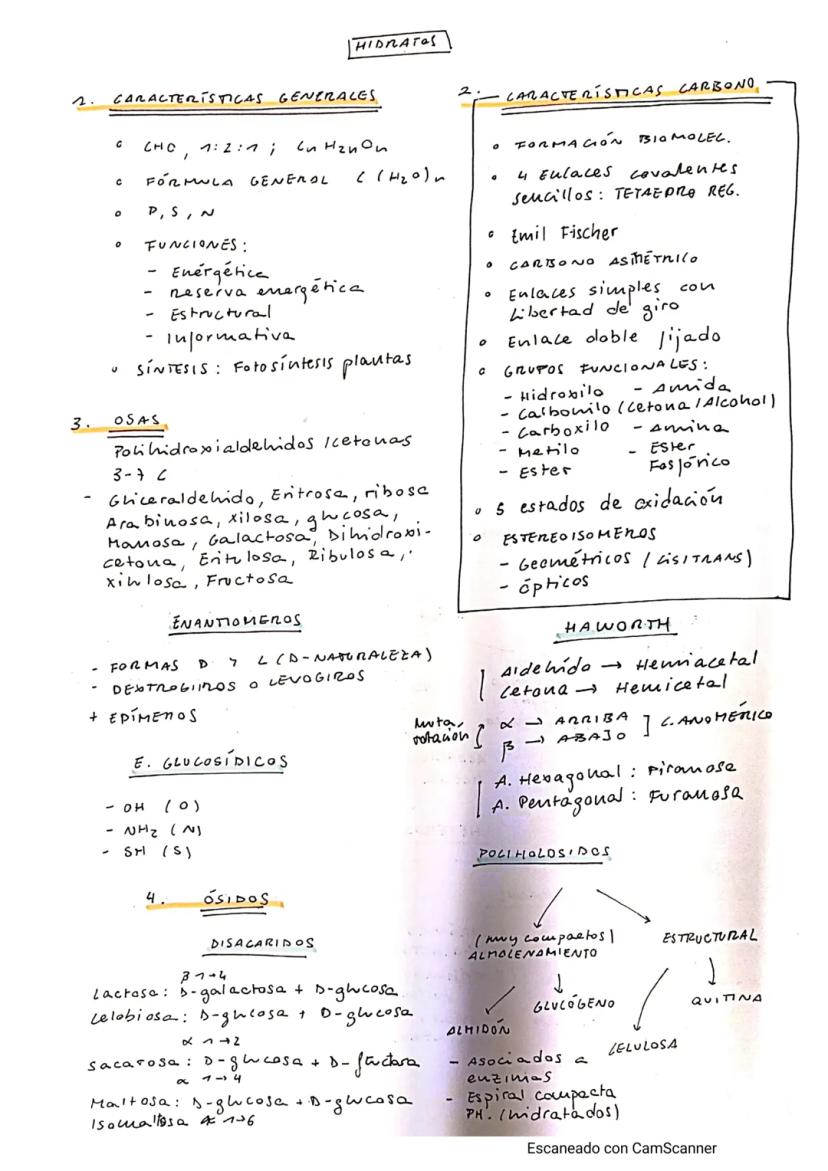 HIDRATOS
1. CARACTERÍSTICAS GENERALES
° CHO, 1:2:1 ; CnH2nOn
° FÓRMULA GENERAL C(H2O)n
° P, S, N
° FUNCIONES:
- Enérgética
- Reserva energética
- Estructural
- Informativa
° SÍNTESIS: Fotosíntesis plantas
2. CARACTERÍSTICAS CARBONO
° FORMACIÓN BIOMOLEC.
° 4 Enlaces covalentes
sencillos: TETAEDRO REG.
° Emil Fischer
° CARBONO ASIMÉTRICO
° Enlaces simples con
libertad de giro
° Enlace doble fijado
° GRUPOS FUNCIONALES:
- Hidroxilo - Amida
- Carbonilo (Cetona/Alcohol)
- Carboxilo - Amina
- Metilo - Ester
- Ester Fosfórico
° 5 estados de oxidación
° ESTEREOISOMEROS
- Geométricos (CIS/TRANS)
- ópticos
3. OSAS
Polihidroxialdehidos/cetonas
3-7 C
- Gliceraldehido, Eritrosa, ribosa
Arabinosa, xilosa, glucosa,
Manosa, Galactosa, Dihidroxi-
cetona, Eritulosa, Ribulosa,
xilulosa, Fructosa
ENANTIOMEROS
- FORMAS D Y L (D-NATURALEZA)
- DEXTROGIROS O LEVOGIROS
+ EPÍMEROS
E. GLUCOSÍDICOS
- OH (O)
- NH2 (N)
- SH (S)
HAWORTH
Aldehído → Hemiacetal
Cetona → Hemicetal
Muta,
rotación
α → ARRIBA
β → ABAJO
C. ANOMÉRICO
A. Hexagonal: Piranosa
A. Pentagonal: Furanosa
4. ÓSIDOS
DISACARIDOS
β 1→4
Lactosa: D-galactosa + D-glucosa
Celobiosa: D-glucosa + D-glucosa
α 1→2
Sacarosa: D-glucosa + D-fructora
α 1→4
Maltosa: D-glucosa + D-glucosa
Isomaltosa α 1→6
POLIHOLOSIDOS
(muy compactos)
ALMACENAMIENTO
ESTRUCTURAL
GLUCÓGENO
QUITINA
ALMIDÓN
CELULOSA
- Asociados a
enzimas
- Espiral compacta
PH. (hidratados)
Escaneado con CamScanner